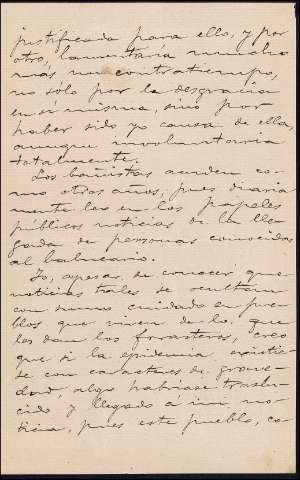 justificada para ello, y por
otro, lamentaría mucho
más un contratiempo,
no sólo por la desgracia
en sí misma, sino por
haber sido yo causa de ella,
aunque involuntaria
totalmente.
Los bañistas acuden co-
mo otros años, pues diaria
mente leo en los papeles
públicos noticias de la lle-
gada de personas conocidas
al balneario.
Yo, apesar de conocer que
noticias tales se ocultan
con sumo cuidado en pue-
blos que viven de lo que
les dan los forasteros, creo
que si la epidemia existie-
se con caracteres de grave-
dad, algo habríase traslu-
cido y llegado á mi no-
ticia, pues este pueblo, co-